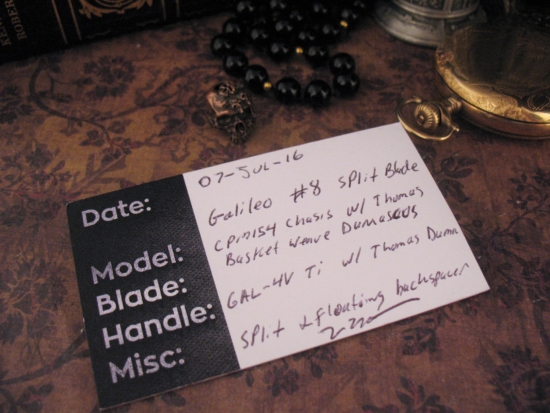 Date: 07-JUL-16
Model: Galileo #8 Split Blade
Blade: CPM154 Chasis w/ Thomas
Basket Weave Damascus
Handle: 6AL-4V Ti w/ Thomas
Misc: Split & Floating backspacer